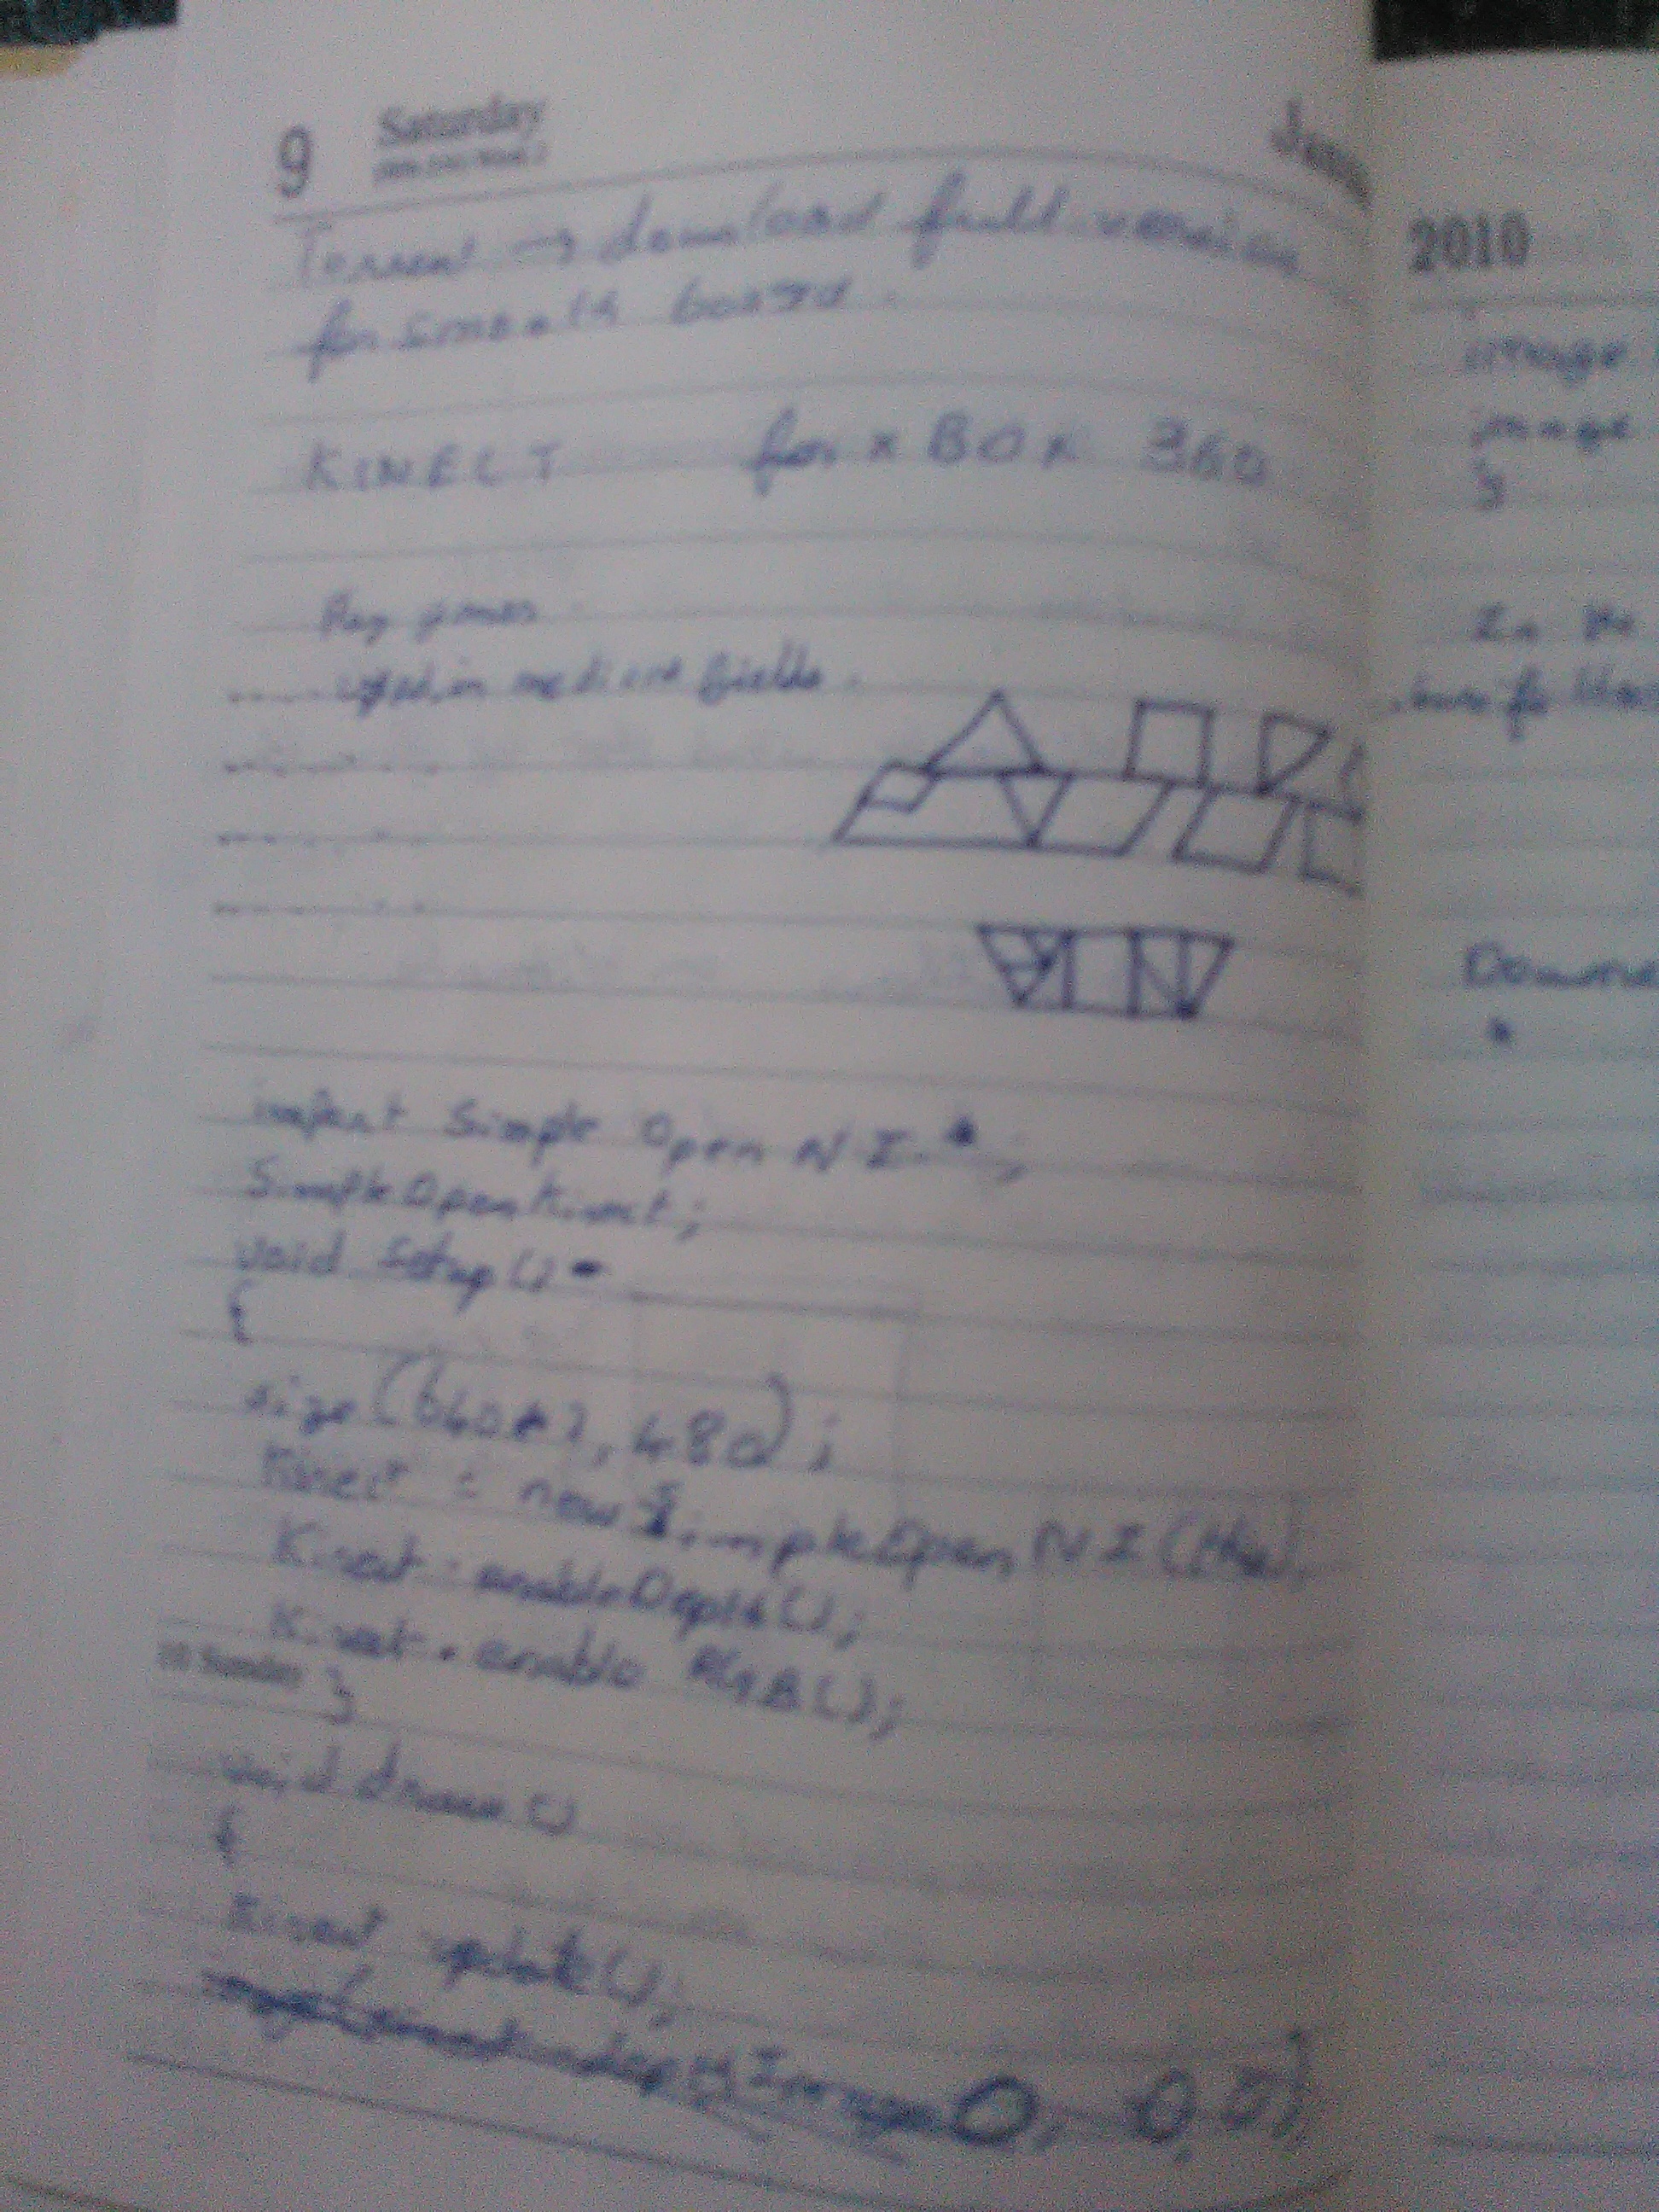 9 Saturday
Torrent → download full version
for smooth board.
KINECT for x BOX 360
Play games
used in medicine fields.
import Simple Open NI.*;
SimpleOpenKinect;
void setup()
{
size(640*2, 480);
Kinect = new SimpleOpenNI(this)
Kinect.enableDepth();
Kinect.enable RGB();
10 Sunday }
void draw()
{
Kinect update();
depthImage(), 0,0)
2010
image
image
}
In the